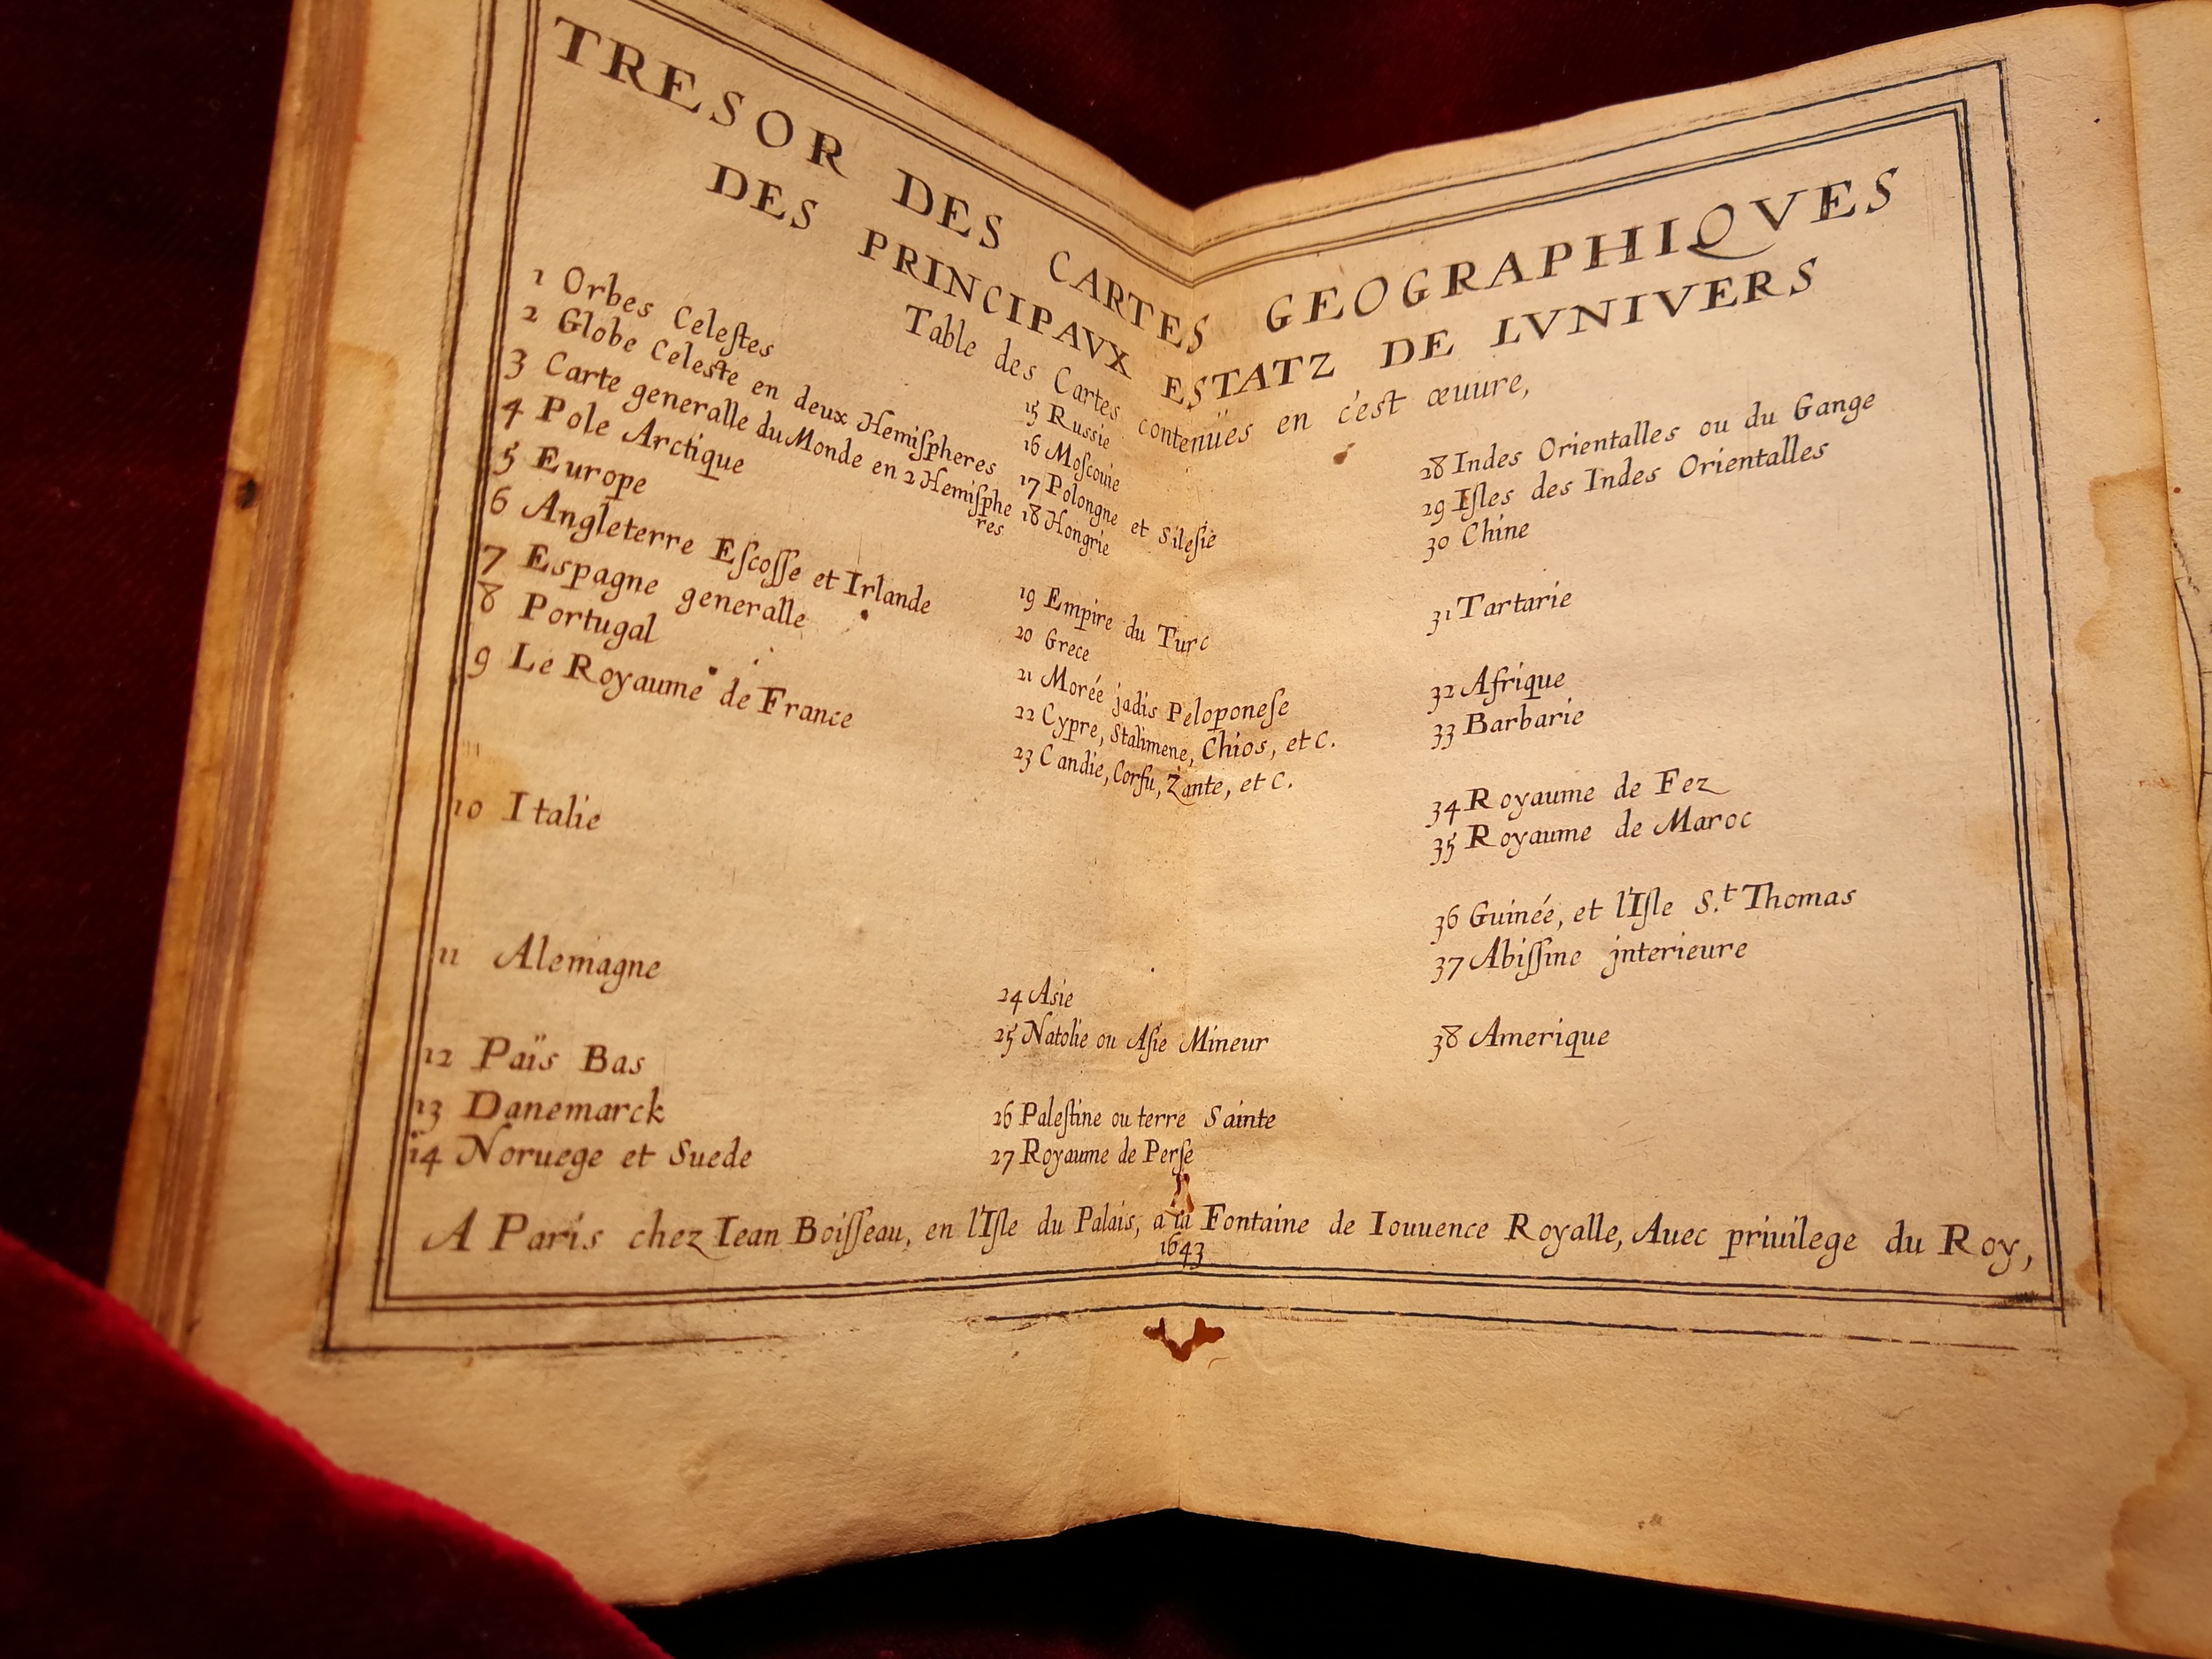 TRESOR DES CARTES GEOGRAPHIQVES
DES PRINCIPAVX ESTATZ DE LVNIVERS
Table des Cartes contenües en c'est œuure,
1 Orbes Celeſtes
2 Globe Celeste en deux Hemiſpheres
3 Carte generalle du Monde en 2 Hemiſphe
res
4 Pole Arctique
5 Europe
6 Angleterre Eſcoſſe et Irlande
7 Espagne generalle
8 Portugal
9 Le Royaume de France
10 Italie
11 Alemagne
12 Païs Bas
13 Danemarck
14 Noruege et Suede
15 Russie
16 Moſcouie
17 Polongne et Sileſie
18 Hongrie
19 Empire du Turc
20 Grece
21 Morée jadis Peloponeſe
22 Cypre, Stalimene, Chios, etc.
23 Candie, Corfu, Zante, etc.
24 Asie
25 Natolie ou Aſie Mineur
26 Paleſtine ou terre Sainte
27 Royaume de Perſe
28 Indes Orientalles ou du Gange
29 Iſles des Indes Orientalles
30 Chine
31 Tartarie
32 Afrique
33 Barbarie
34 Royaume de Fez
35 Royaume de Maroc
36 Guinée, et l'Iſle S.t Thomas
37 Abiſſine jnterieure
38 Amerique
A Paris chez Iean Boiſſeau, en l'Iſle du Palais, a la Fontaine de Iouuence Royalle, Auec priuilege du Roy,
1643